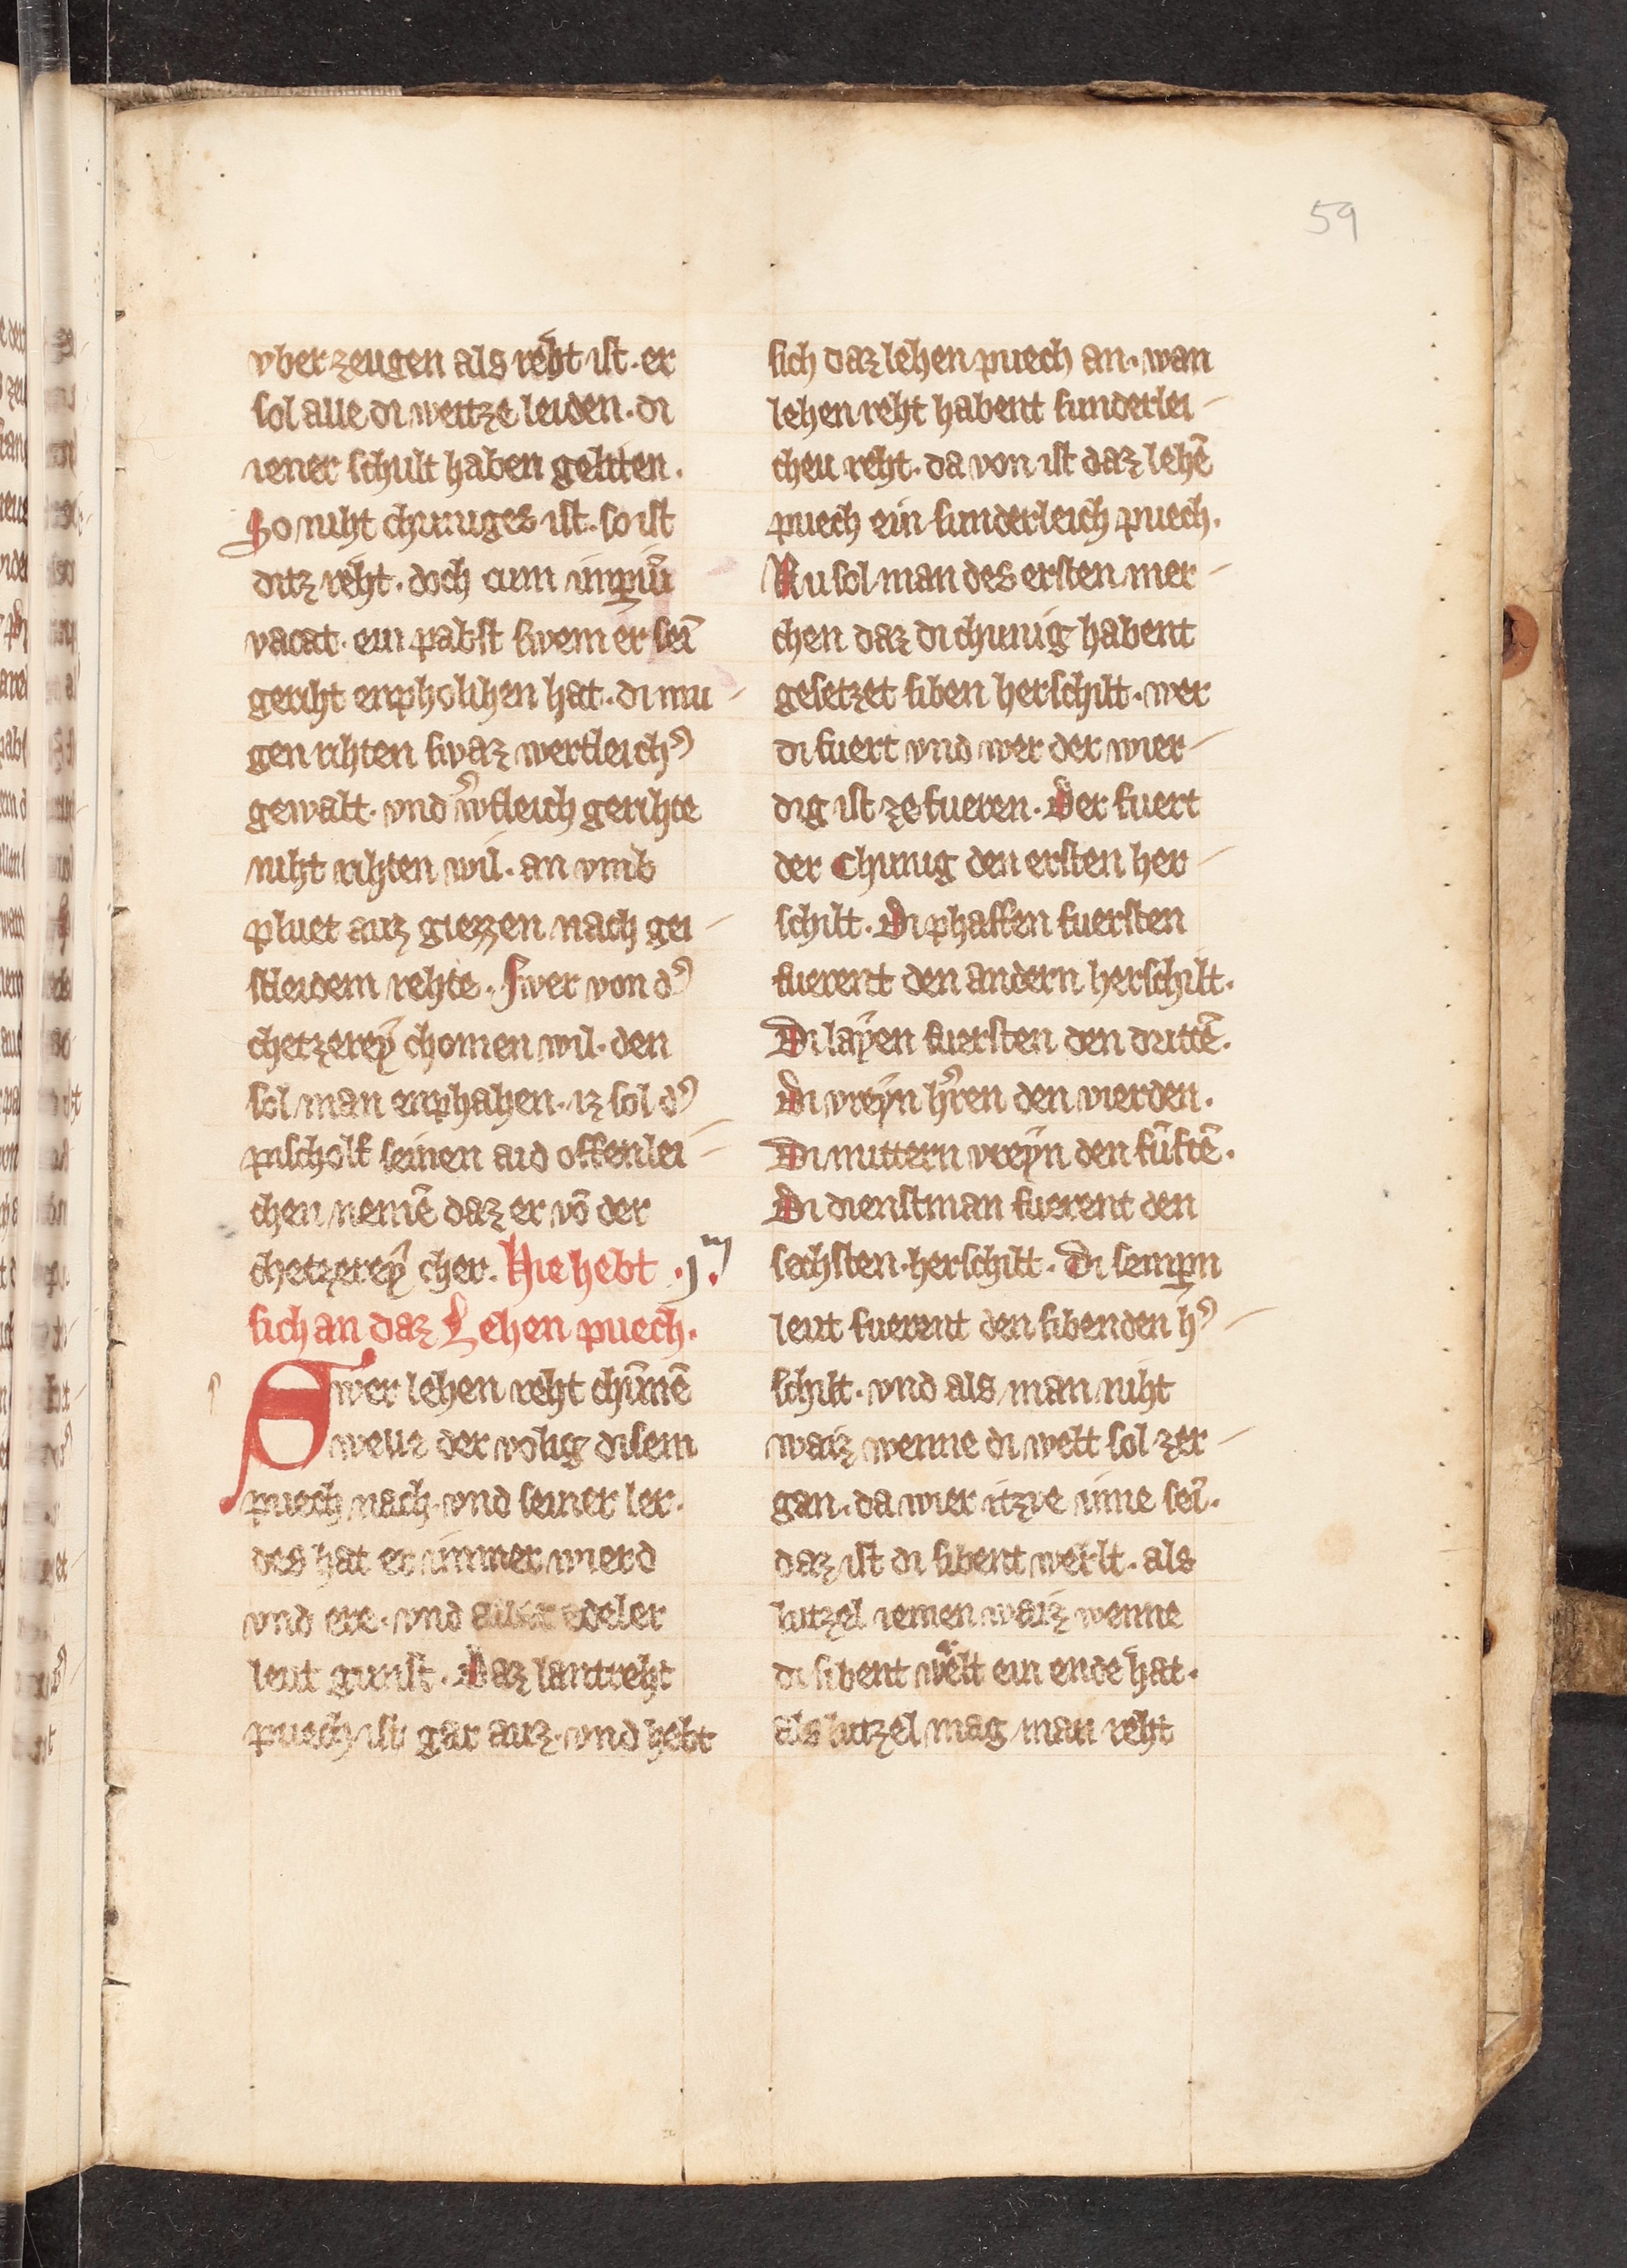 59
vber zeugen als reht ist. er
sol alle di weitze leiden. di
iener schult haben geliten.
So niht chuniges ist. so ist
ditz reht. doch cum imꝑiũ
vacat. ein pabst swem er sei͂
geriht enpholihen hat. di mu-
gen rihten swaz wertleichˀ
gewalt. vnd wˀtleich gerihte
niht rihten wil. an vmb
pluet auz giezzen nach gei-
stleichem rehte. Swer von dˀ
chetzereÿ chomen wil. den
sol man enphahen. iz sol dˀ
pischolf seinen aid offenlei-
chen nemē daz er vō der
chetzereÿ cher. Hie hebt .jͫ.
sich an daz Lehen puech.
Swer lehen reht chūnē
welle der volig disem
puech nach. vnd seiner ler.
des hat er immer wierd
vnd ere. vnd aller edeler
leut gunst. Daz lantreht
puech ist gar auz. vnd hebt
sich daz lehen puech an. wan
lehen reht habent sunderlei-
cheu reht. da von ist daz lehē
puech ein sunderleich puech.
Nu sol man des ersten mer-
chen daz di chunig habent
gesetzet siben herschilt. wer
di fuert vnd wer der wier-
dig ist ze fueren. Der fuert
der Chunig den ersten her-
schilt. Di phaffen fuersten
fuerent den andern herschilt.
Di laÿen fuersten den drittē.
Di vreÿn hˀren den vierden.
Di mittern vreÿn den fūftē.
Di dienstman fuerent den
sechsten herschilt. Di semꝑn
leut fuerent den sibenden hˀ-
schilt. vnd als man niht
waiz wenne di welt sol zer-
gan. da wier itzve inne sei͂.
daz ist di sibent werlt. als
lutzel iemen waiz wenne
di sibent welt ein ende hat.
als lutzel mag man reht